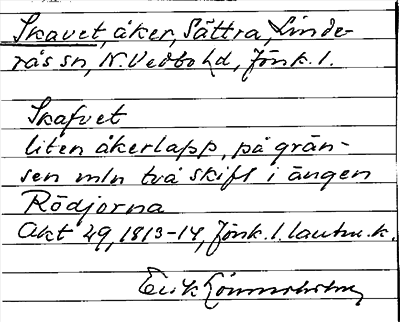 Skavet, åker, Sättra, Linde-
rås sn, N. Vedbo hd, Jönk. l.
Skafvet
liten åkerlapp, på grän-
sen mln två skift i ängen
Rödjorna
Akt 29, 1813-14, Jönk. l. lantm. k.
Erik